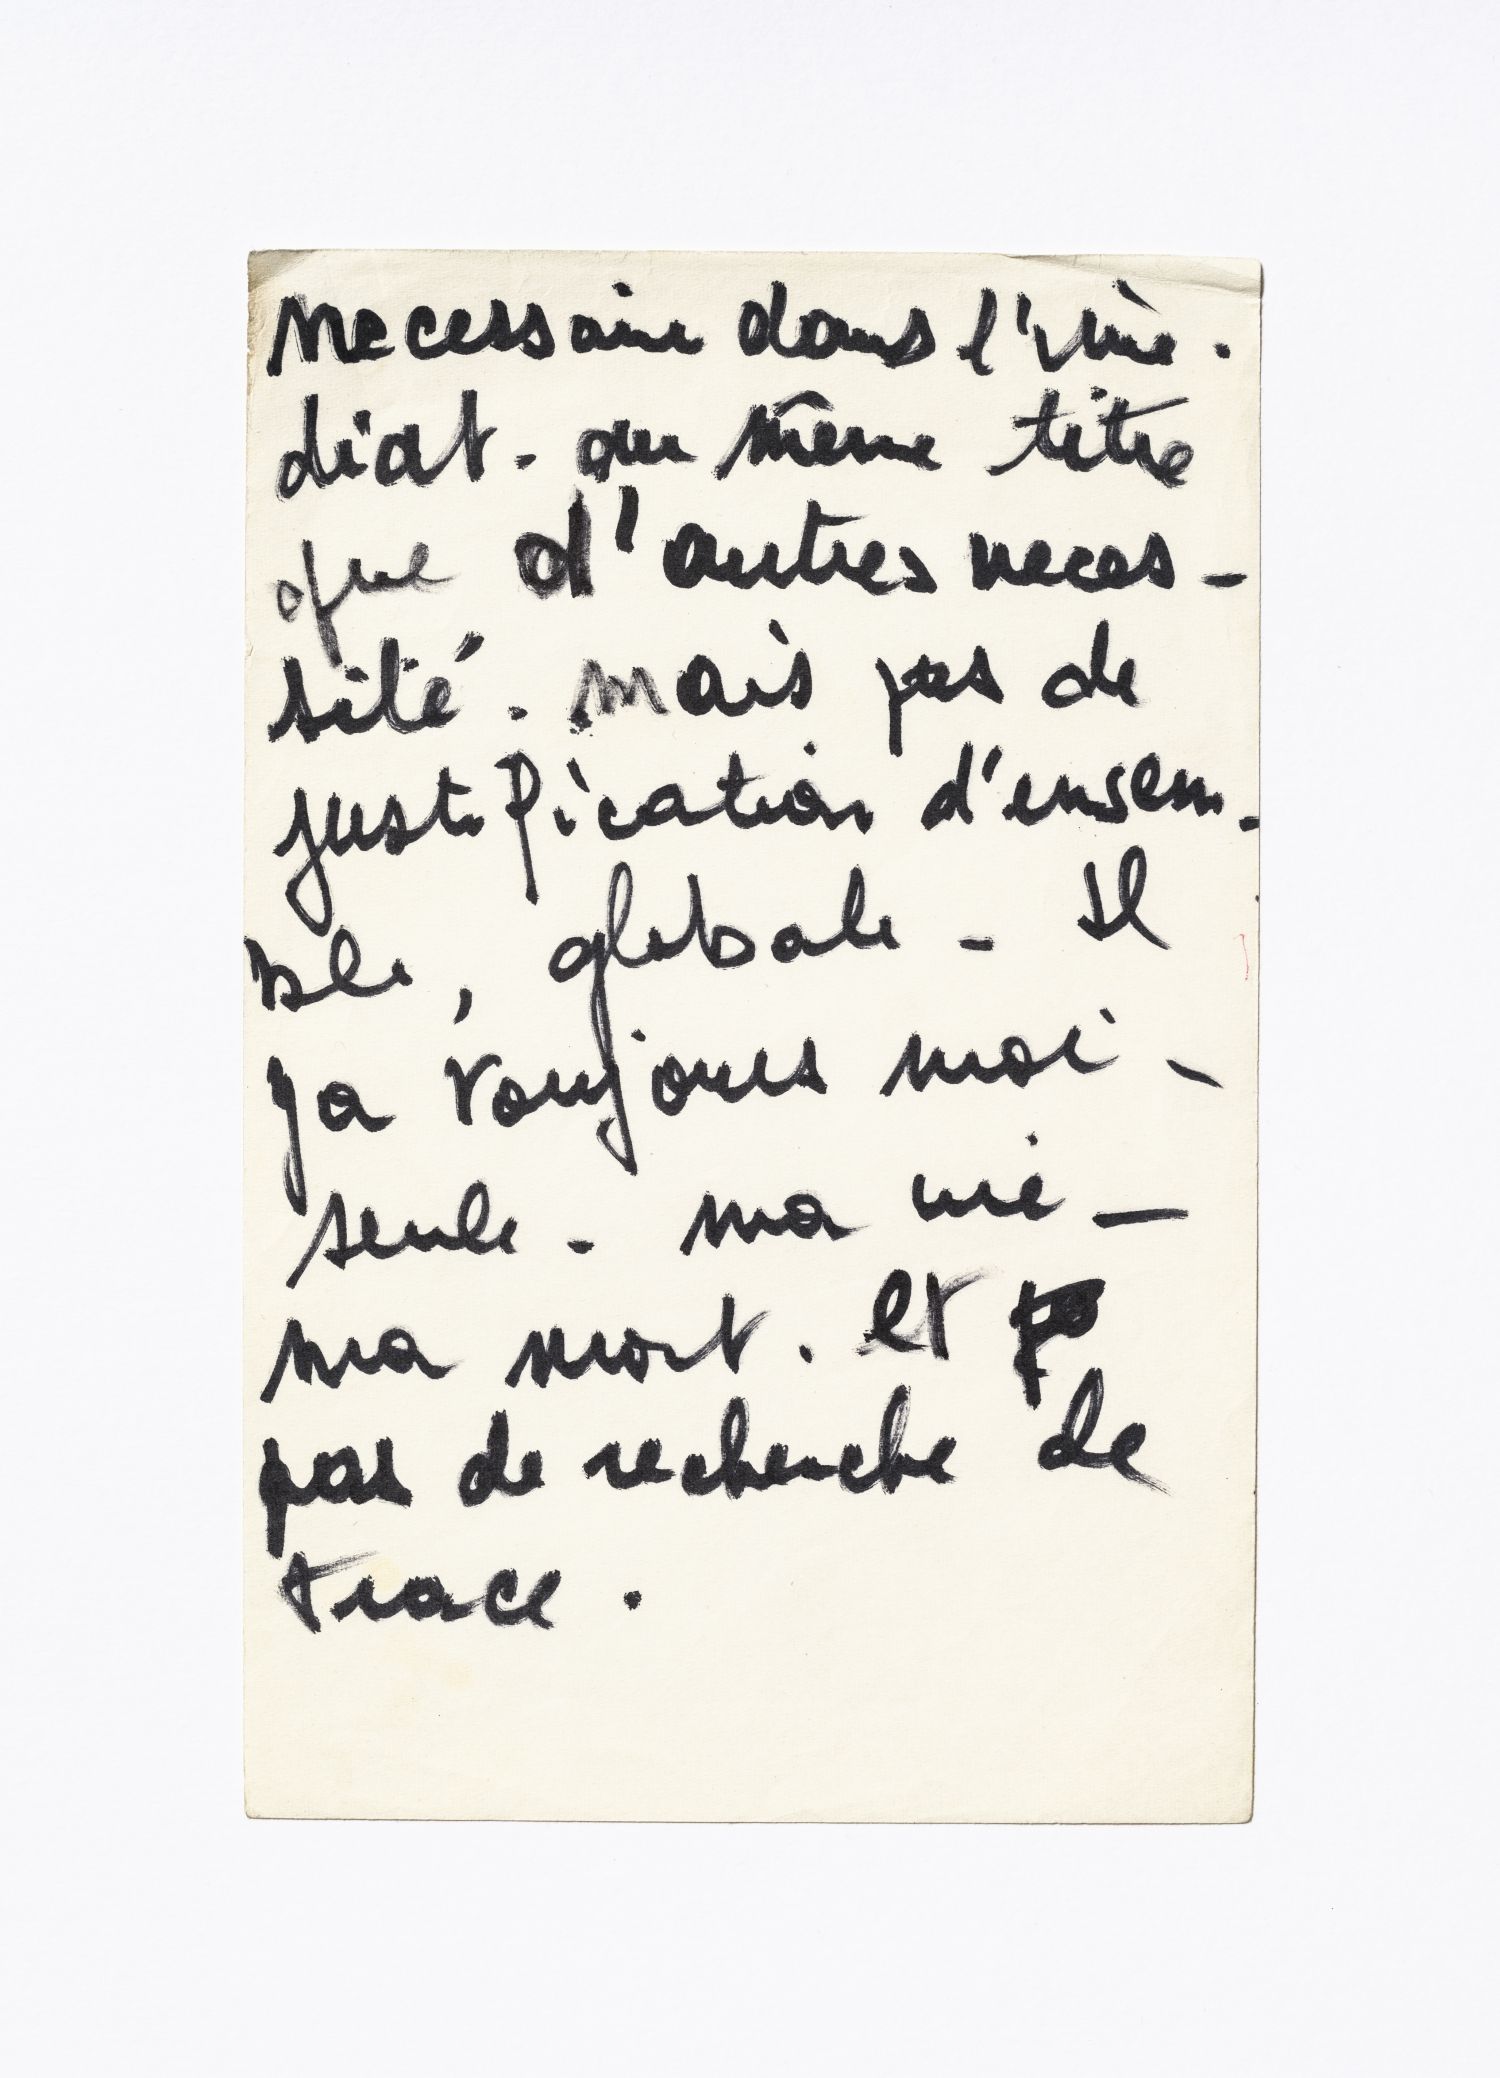 necessaire dans l'imé-
diat. au même titre
que d'autres neces-
sité. mais pas de
justification d'ensem-
ble, globale - Il
ya toujours moi -
seule - ma vie -
ma mort. et
pas de recherche de
trace.